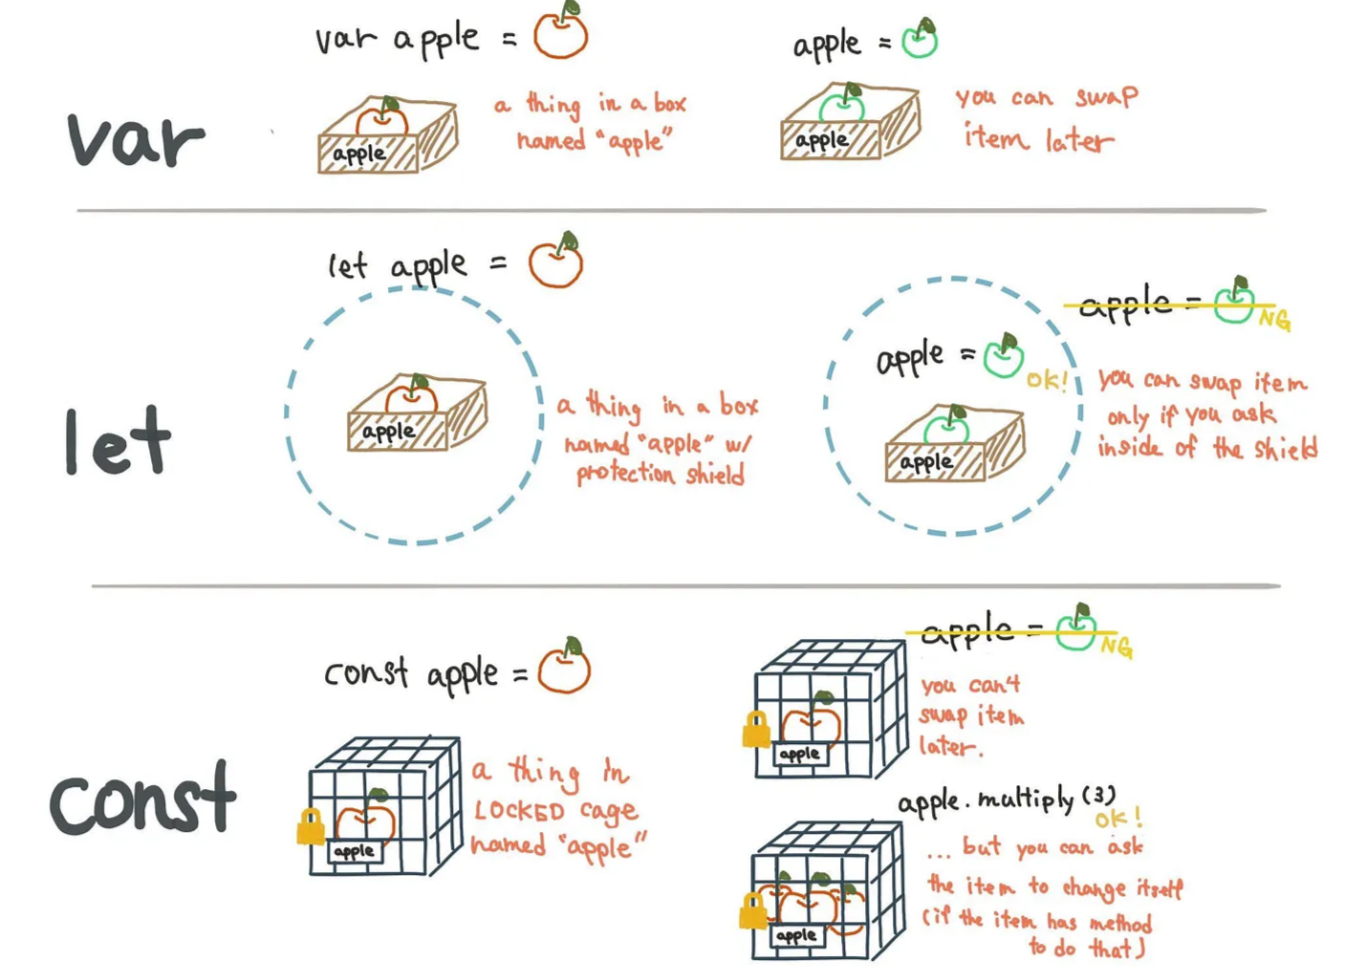 var
var apple =
apple
a thing in a box
named "apple"
apple =
apple
you can swap
item later
let
let apple =
apple
a thing in a box
named "apple" w/
protection shield
apple =
NG
apple =
ok!
apple
you can swap item
only if you ask
inside of the shield
const
const apple =
apple
a thing in
LOCKED cage
named "apple"
apple =
NG
apple
you can't
swap item
later.
apple.multiply(3)
ok!
apple
... but you can ask
the item to change itself
(if the item has method
to do that)